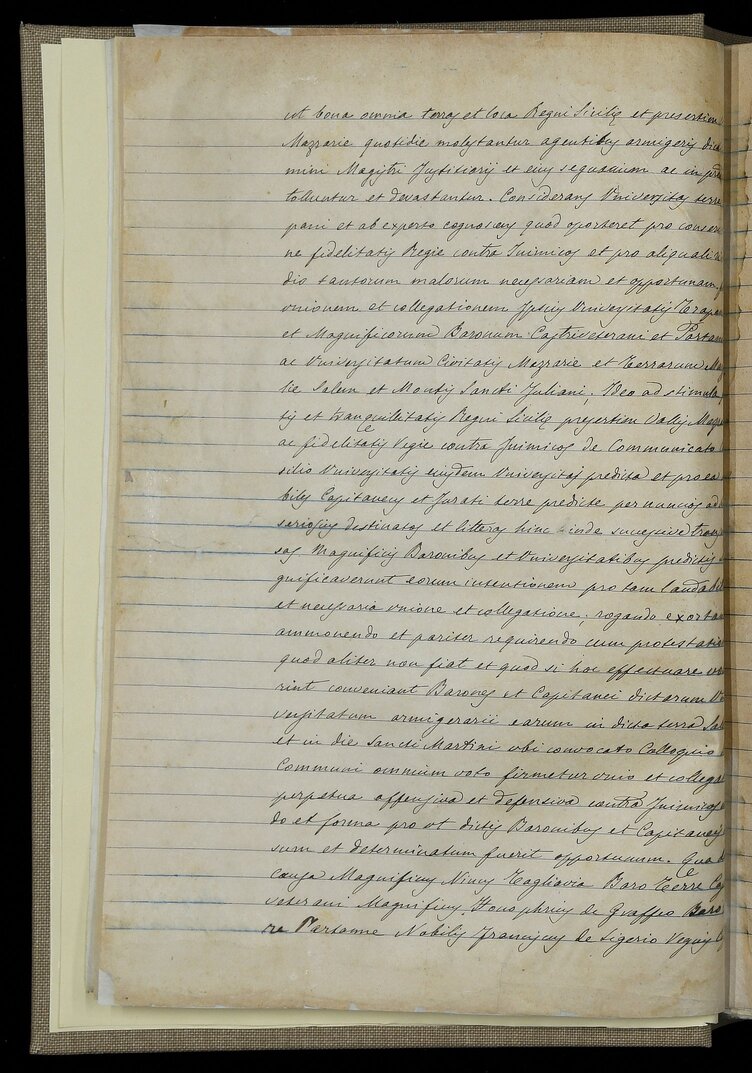 ut bona omnia terras et loca Regni Sicilię et presertim
Mazzarie quotidie molestantur agentibus armigeris Do
mini Magistri Justitiarij et eius sequacium ac in
tolluntur et devastantur. Considerans Universitas terre
pani et ab experto cognoscens quod oporteret pro conser
ne fidelitatis Regie contra Inimicos et pro aliquali
dio tantorum malorum necessariam et opportunam
unionem et collegationem Ipsius Universitatis Trapa
et Magnificorum Baronum Castriveterani et Partan
ac Universitatum Civitatis Mazzarie et Terrarum
lie Salem et Montis Sancti Juliani. Ideo ad
tis et tranquilitatis Regni Sicilię presertim Vallis Mazz
ac fidelitatis Regie contra Inimicos de Communicato
silio Universitatis eiusdem Universitas predicta et pro ea
biles Capitaneus et Jurati terre predicte per nuncios ad
destinatos et litteras hinc inde successive trans
sas Magnificis Baronibus et Universitatibus predictis
gnificaverunt eorum intentionem pro tam laudabi
et necessaria unione et collegatione, rogando exorta
ammonendo et pariter requirendo cum protestatio
quod aliter non fiat et quod si hoc effectuare vo
rint conveniant Barones et Capitanei dictarum U
versitatum armigerarii earum in dicta terra Sa
et in die Sancti Martini ubi convocato Colloquio
Communi omnium voto firmetur unio et collega
perpetua offensiva et defensiva contra Inimicos
do et forma pro ut dictis Baronibus et Capitaneis
sum et determinatum fuerit opportunum. Qua
causa Magnificus Ninus Tagliavia Baro Terre Ca
veterani Magnificus Honophrius de Graffeo Baro
re Partanne Nobilis Franciscus de Sigerio